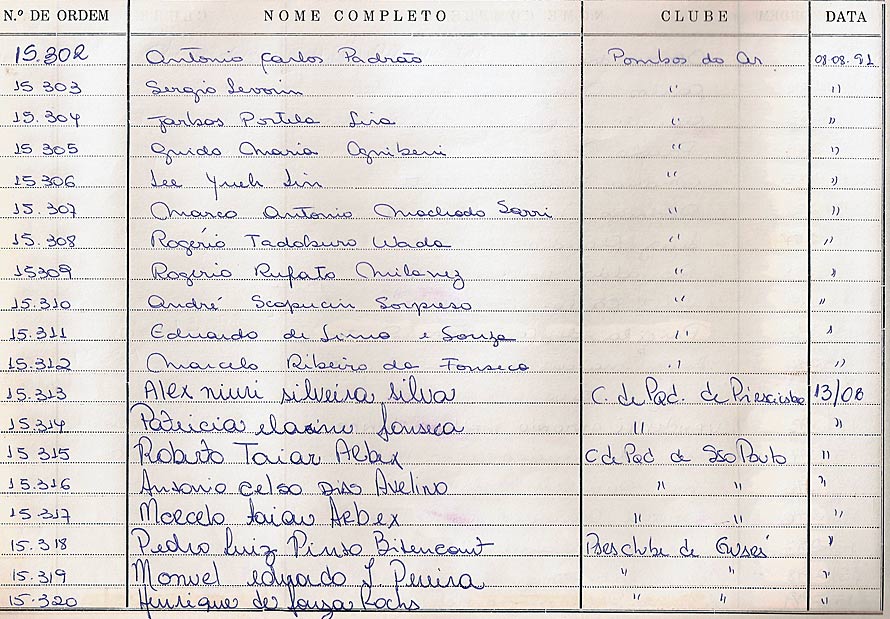 N.º DE ORDEM NOME COMPLETO CLUBE DATA
15.302 Antonio Carlos Padrão Pombos do Ar 08.08.91
15 303 Sergio Levorin " "
15.304 Jarbas Portela Lira " "
15 305 Guido Maria Agniberi " "
15 306 Lee Yueh Lin " "
15.307 Marco Antonio Machado Sarri " "
15.308 Rogério Tadoburo Wada " "
15309 Rogerio Rufato Milanez " "
15.310 André Scapucin Sorpreso " "
15.311 Eduardo de Lima e Souza " "
15.312 Marcelo Ribeiro da Fonseca " "
15.313 Alex niuri silveira silva C. de Paq. de 13/08
15.314 Patricia fonseca " "
15 315 Roberto Taiar Arbex C de Paq de São Paulo "
15.316 Antonio celso Dias Avelino " " "
15.317 Marcelo taiar Arbex " " "
15.318 Pedro Luiz Pinto Bitencourt de "
15.319 Manuel eduardo J. Pereira " " "
15.320 Henrique de Souza Rocha " " "